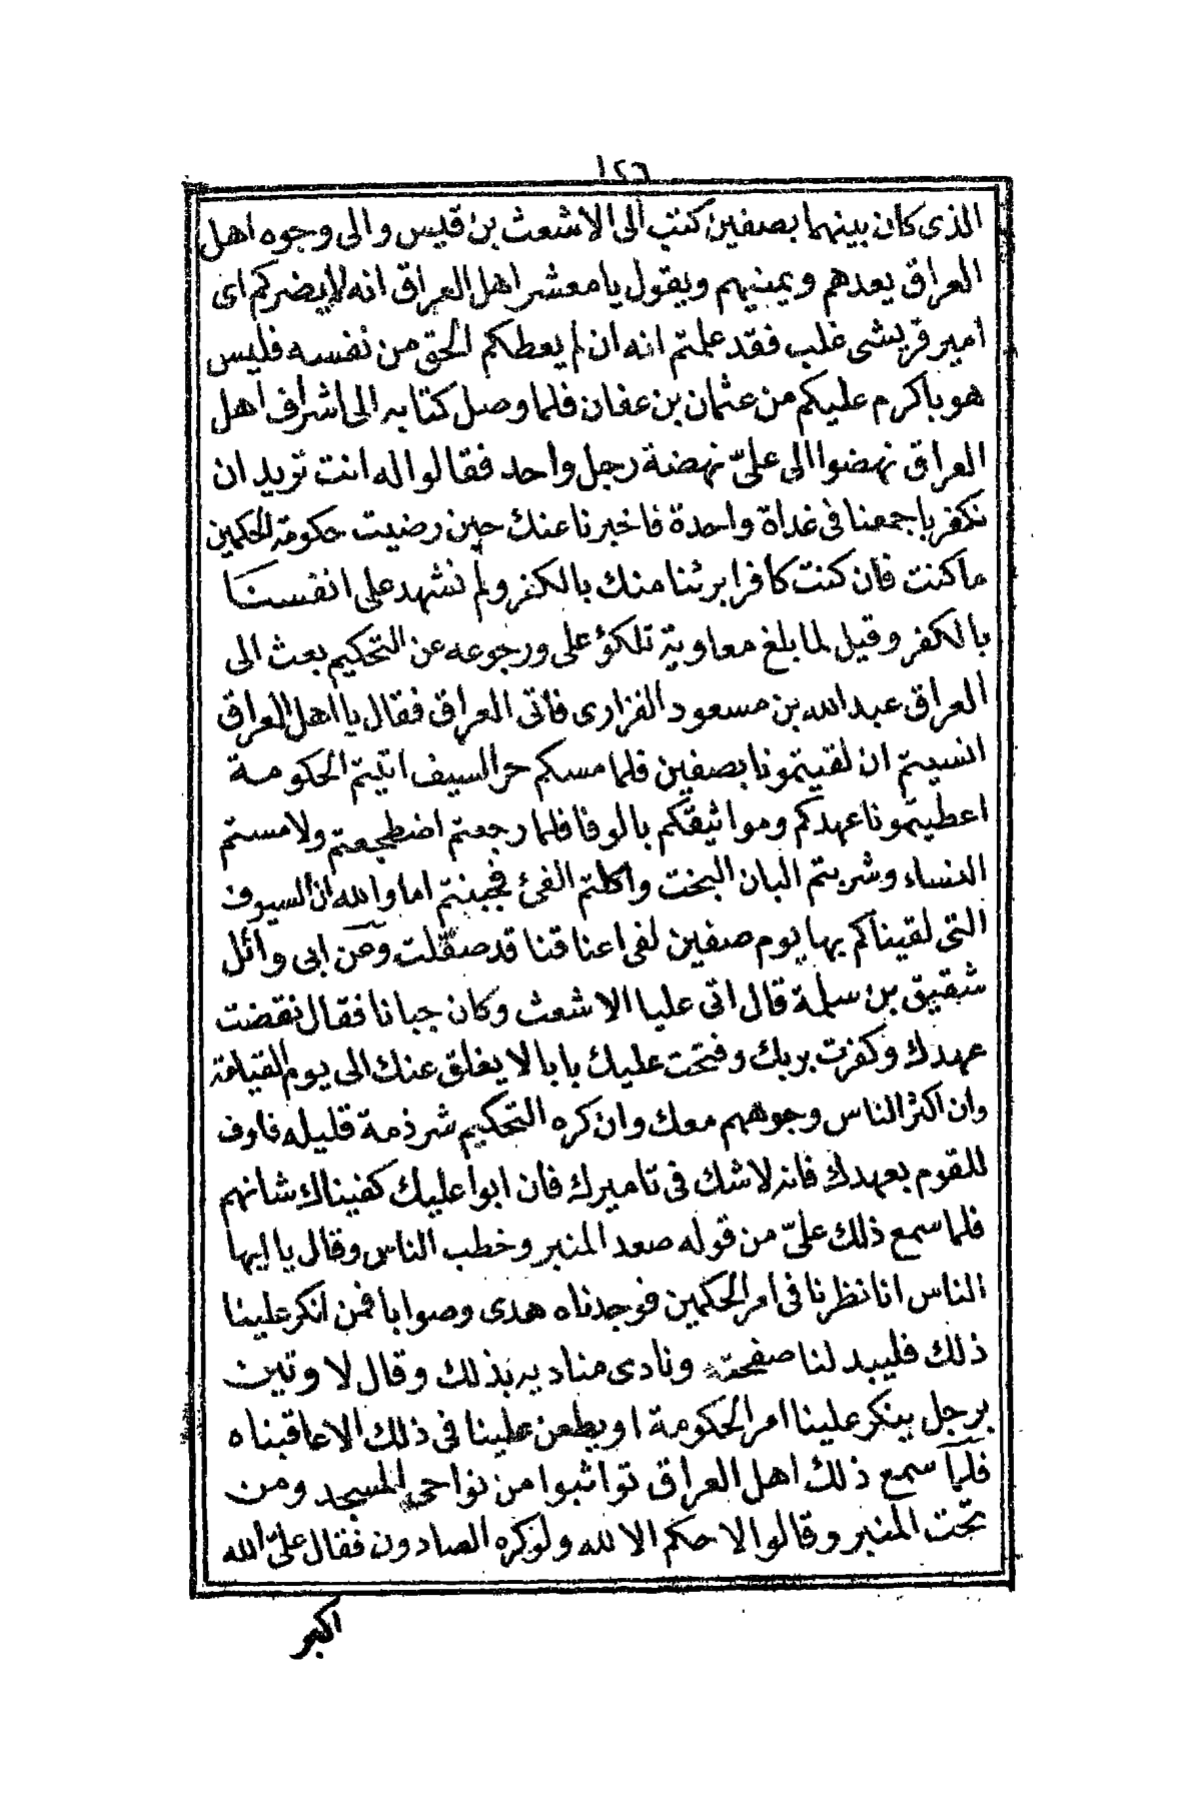 ١٢٦
الذى كان بينهما بصفين كتب الى الاشعث بن قيس والى وجوه اهل
العراق يعدهم ويمنيهم ويقول يا معشر اهل العراق انه لا يضركم اى
امير قريشى غلب فقد علمتم انه ان لم يعطكم الحق من نفسه فليس
هو باكرم عليكم من عثمان بن عفان فلما وصل كتابه الى اشراف اهل
العراق نهضوا الى علىّ نهضة رجل واحد فقالوا له انت تريد ان
نكفر باجمعنا فى غداة واحدة فاخبرنا عنك حين رضيت حكومة الحكمين
ما كنت فان كنت كافرا برئنا منك بالكفر ولم نشهد على انفسنا
بالكفر وقيل لما بلغ معاوية تلكؤ على ورجوعه عن التحكيم بعث الى
العراق عبد الله بن مسعود الفزارى فاتى العراق فقال يا اهل العراق
انسيتم ان لقيتمونا بصفين فلما مسكم حر السيف اتيتم الحكومة
اعطيتمونا عهدكم ومواثيقكم بالوفا فلما رجعتم اضطجعتم ولامستم
النساء وشربتم البان البخت واكلتم الفئ فجبنتم اما والله ان السيوف
التى لقيناكم بها يوم صفين لفى اعناقنا قد صقلت وعن ابى وائل
شقيق بن سلمة قال اتى عليا الاشعث وكان جبانا فقال نقضت
عهدك وكفرت بربك وفتحت عليك بابا لا يغلق عنك الى يوم القيامة
وان اكثر الناس وجوههم معك وان كره التحكيم شرذمة قليله فاوف
للقوم بعهدك فانه لا شك فى تاميرك فان ابوا عليك كفيناك شانهم
فلما سمع ذلك علىّ من قوله صعد المنبر وخطب الناس وقال يا ايها
الناس انا نظرنا فى امر الحكمين فوجدناه هدى وصوابا فمن انكر علينا
ذلك فليبد لنا صفحته ونادى مناديه بذلك وقال لا وتين
برجل ينكر علينا امر الحكومة او يطعن علينا فى ذلك الا عاقبناه
فلما سمع ذلك اهل العراق تواثبوا من نواحى المسجد ومن
تحت المنبر وقالوا لا حكم الا لله ولو كره الصادون فقال علىّ الله
اكبر